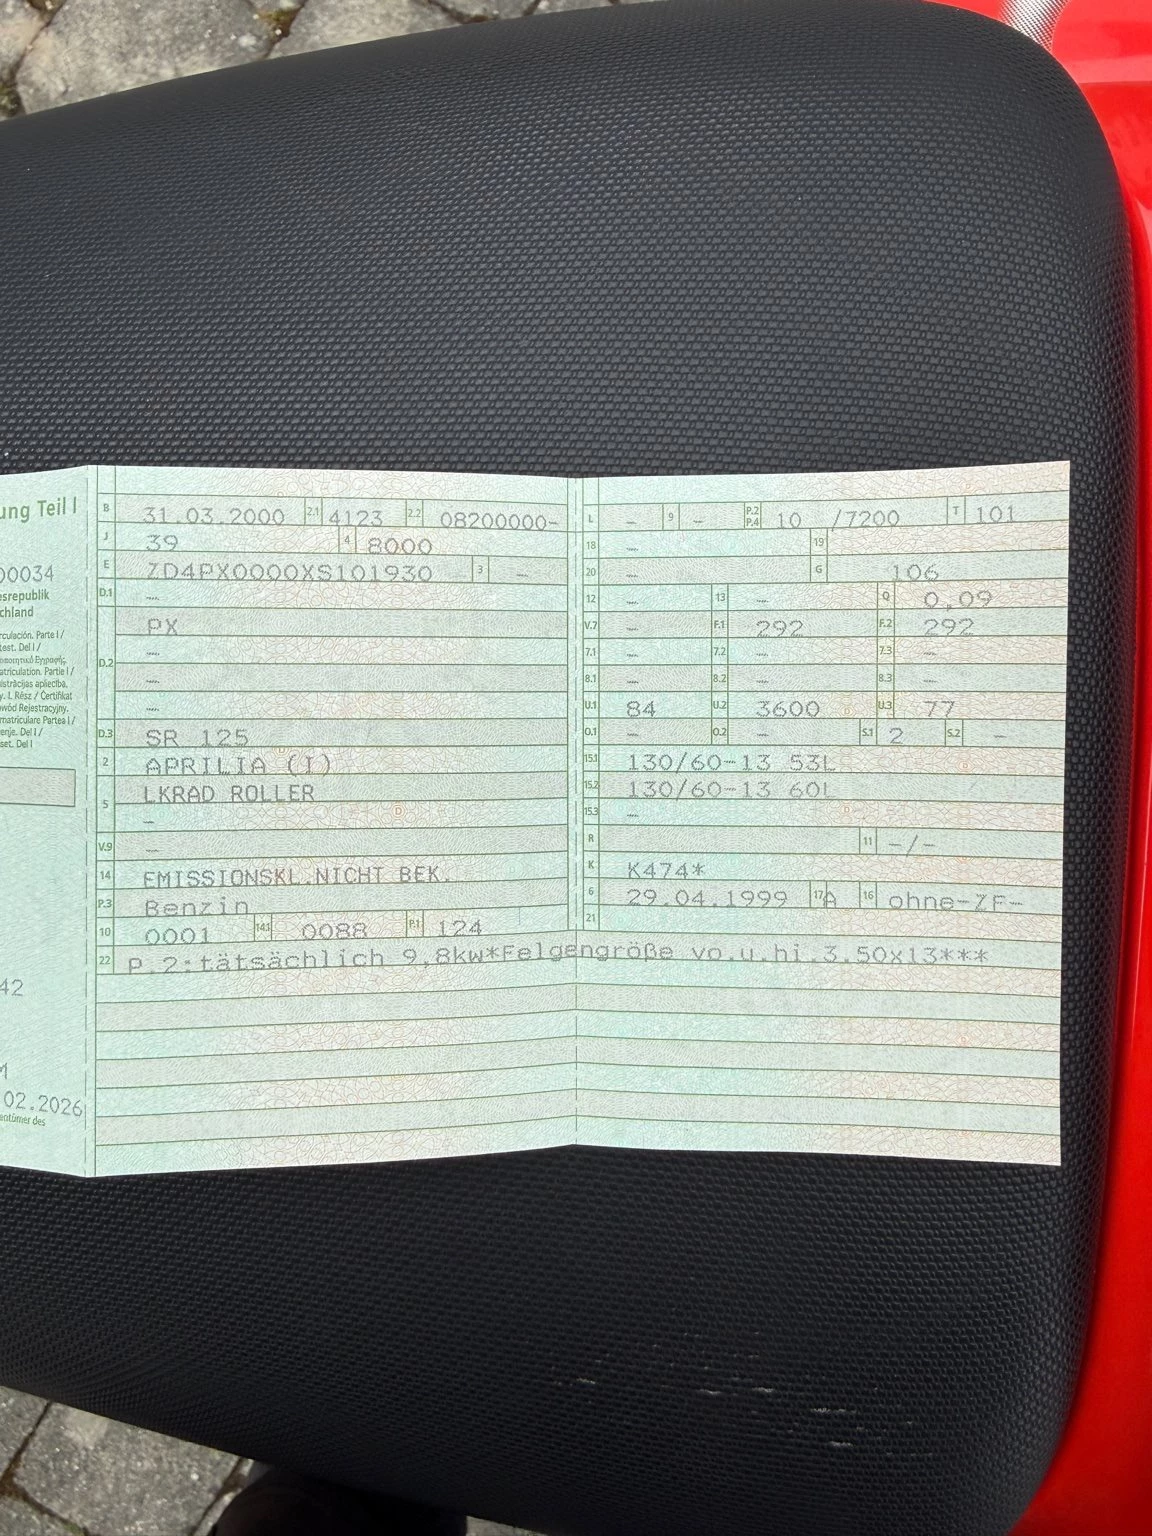 ung Teil I
00034
esrepublik
chland
rculación. Parte I /
test. Del I /
atriculation. Partie I /
istrācijas apliecība.
y. I. Rész / Ċertifikat
owód Rejestracyjny.
matriculare Partea I /
enje. Del I /
set. Del I
42
02.2026
entümer des
B 31.03.2000 2.1 4123 2.2 08200000-
J 39 4 8000
E ZD4PX0000XS101930 3 —
D.1 —
PX
—
D.2 —
—
D.3 SR 125
2 APRILIA (I)
5 LKRAD ROLLER
—
V.9 —
14 EMISSIONSKL.NICHT BEK.
P.3 Benzin
10 0001 14.1 0088 P.1 124
L — 9 — P.2 P.4 10 /7200 T 101
18 — 19
20 — G 106
12 — 13 — Q 0,09
V.7 — F.1 292 F.2 292
7.1 — 7.2 — 7.3 —
8.1 — 8.2 — 8.3 —
U.1 84 U.2 3600 U.3 77
O.1 — O.2 — S.1 2 S.2 —
15.1 130/60-13 53L
15.2 130/60-13 60L
15.3 —
R 11 -/-
K K474*
6 29.04.1999 17 A 16 ohne-ZF-
21
22 P.2:tätsächlich 9,8kw*Felgengröße vo.u.hi.3.50x13***